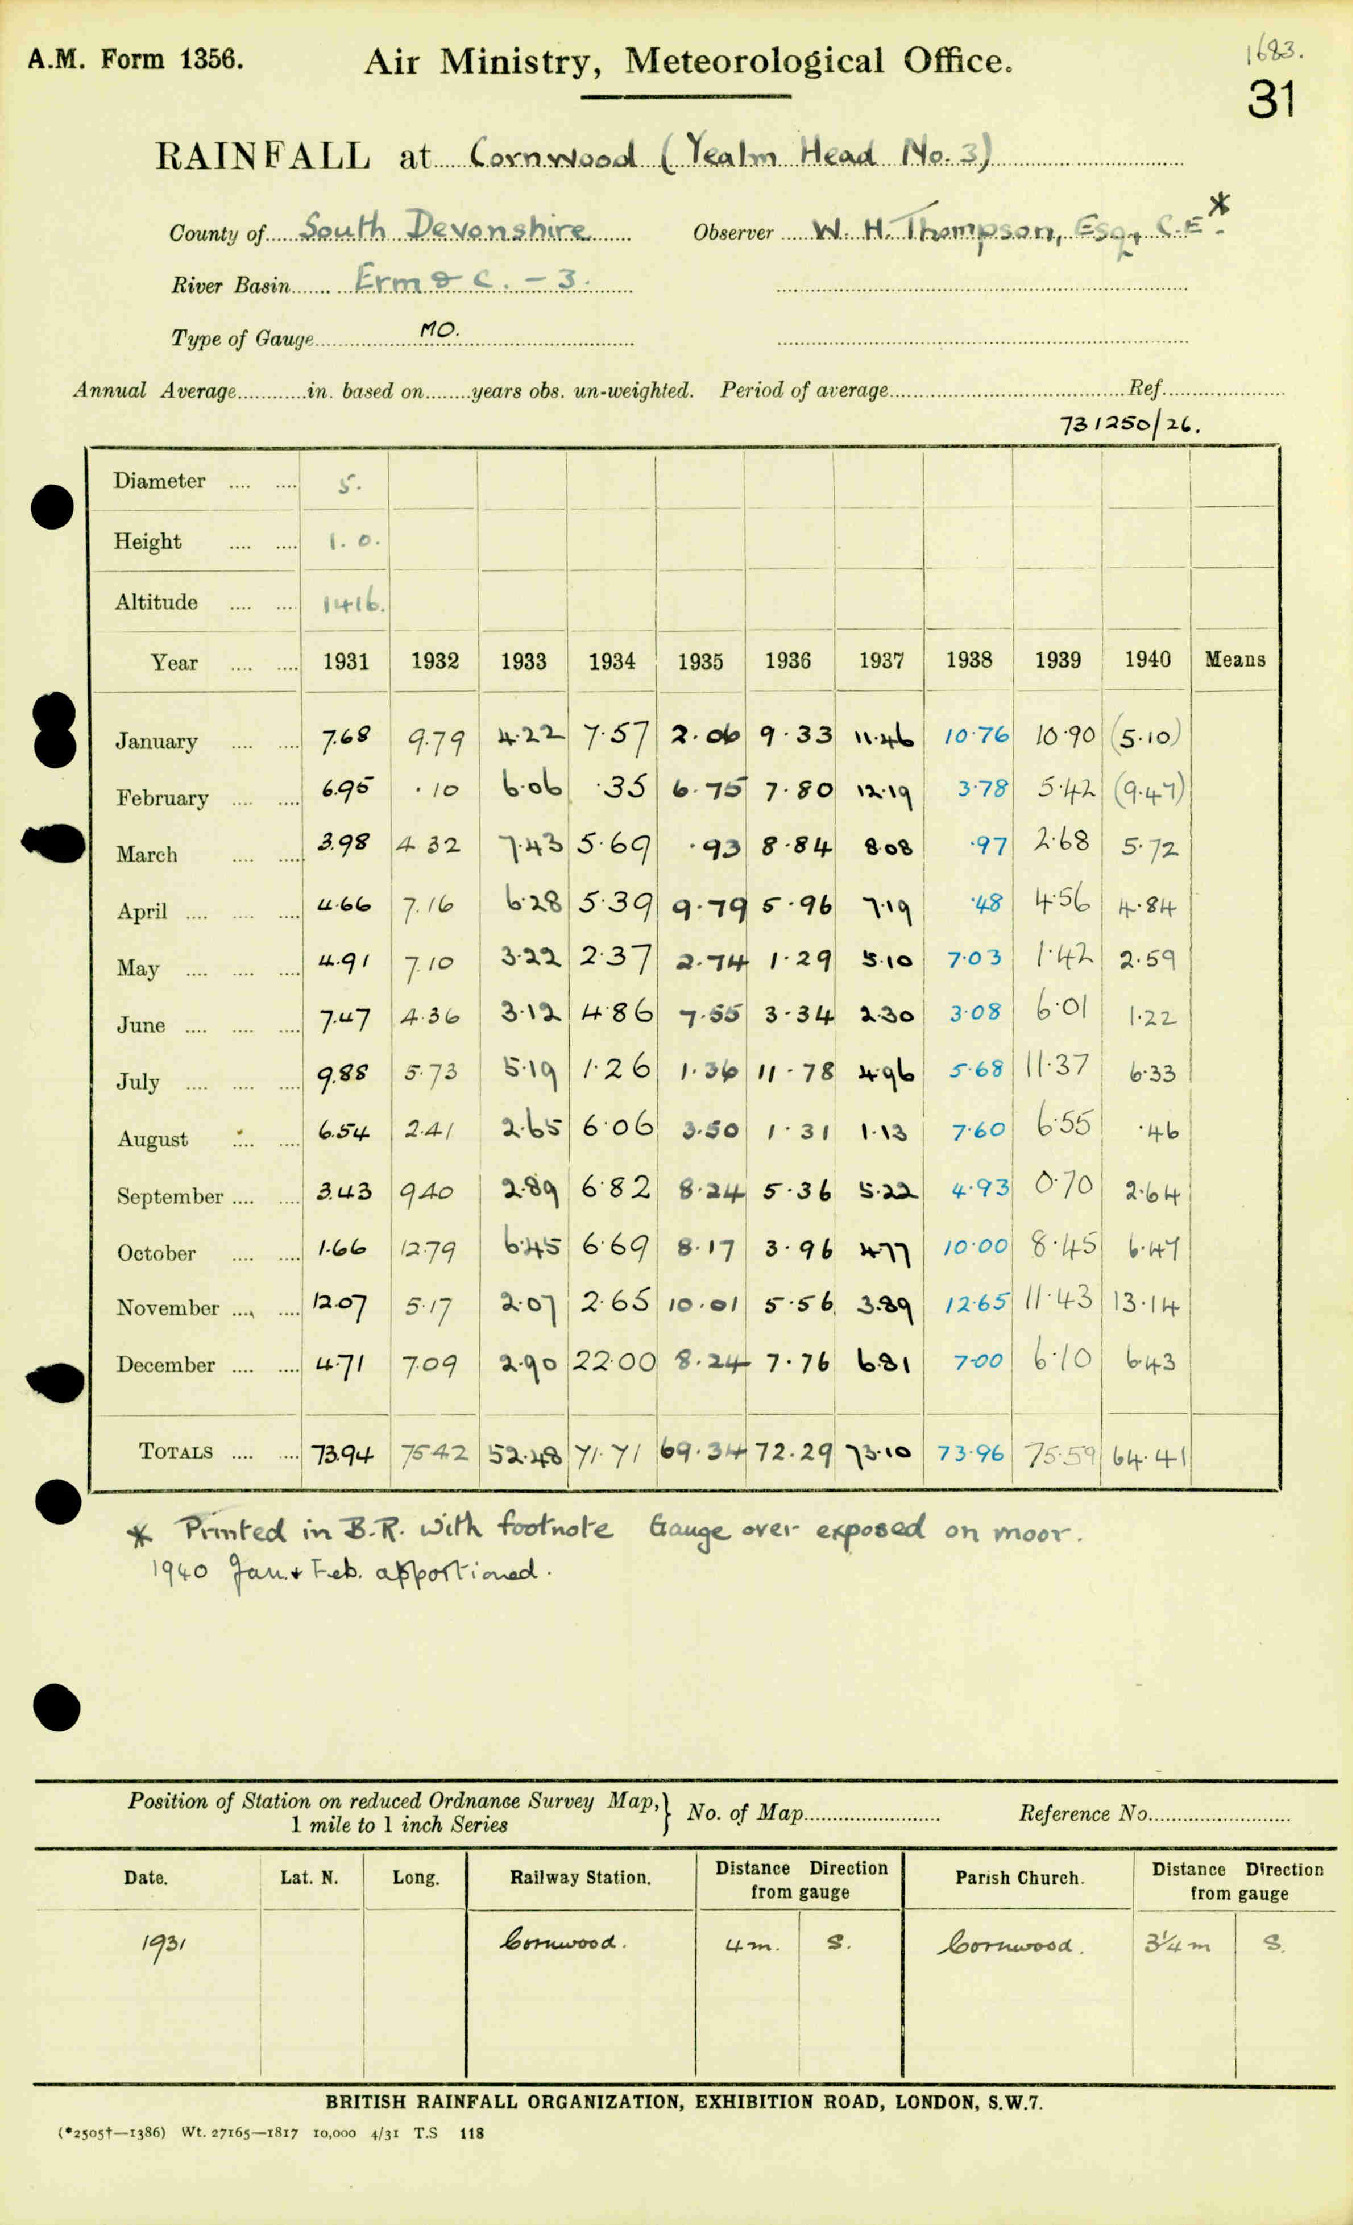 A.M. Form 1356.
Air Ministry, Meteorological Office.
1683.
31
RAINFALL at Cornwood (Yealm Head No. 3)
County of South Devonshire Observer W. H. Thompson, Esq, C.E. *
River Basin Erm & C. - 3.
Type of Gauge MO.
Annual Average in. based on years obs. un-weighted. Period of average Ref.
731250/26.
Diameter 5.
Height 1. 0.
Altitude 1416.
Year 1931 1932 1933 1934 1935 1936 1937 1938 1939 1940 Means
January 7.68 9.79 4.22 7.57 2.06 9.33 11.46 10.76 10.90 (5.10)
February 6.95 .10 6.06 .35 6.75 7.80 12.19 3.78 5.42 (9.47)
March 3.98 4 32 7.43 5.69 .93 8.84 8.08 .97 2.68 5.72
April 4.66 7.16 6.28 5.39 9.79 5.96 7.19 .48 4.56 4.84
May 4.91 7.10 3.22 2.37 2.74 1.29 5.10 7.03 1.42 2.59
June 7.47 4.36 3.12 4.86 7.55 3.34 2.30 3.08 6.01 1.22
July 9.88 5.73 5.19 1.26 1.36 11.78 4.96 5.68 11.37 6.33
August 6.54 2.41 2.65 6.06 3.50 1.31 1.13 7.60 6.55 .46
September 3.43 9.40 2.89 6.82 8.24 5.36 5.22 4.93 0.70 2.64
October 1.66 12.79 6.45 6.69 8.17 3.96 4.77 10.00 8.45 6.47
November 12.07 5.17 2.07 2.65 10.01 5.56 3.89 12.65 11.43 13.14
December 4.71 7.09 2.90 22.00 8.24 7.76 6.81 7.00 6.10 6.43
TOTALS 73.94 75.42 52.48 71.71 69.34 72.29 73.10 73.96 75.59 64.41
* Printed in B.R. with footnote Gauge over exposed on moor.
1940 Jan. & Feb. apportioned.
Position of Station on reduced Ordnance Survey Map, } No. of Map Reference No.
1 mile to 1 inch Series
Date. Lat. N. Long. Railway Station. Distance Direction from gauge Parish Church. Distance Direction from gauge
1931 Cornwood. 4 m. S. Cornwood. 3¼ m S.
BRITISH RAINFALL ORGANIZATION, EXHIBITION ROAD, LONDON, S.W.7.
(*2505†—1386) Wt. 27165—1817 10,000 4/31 T.S 118